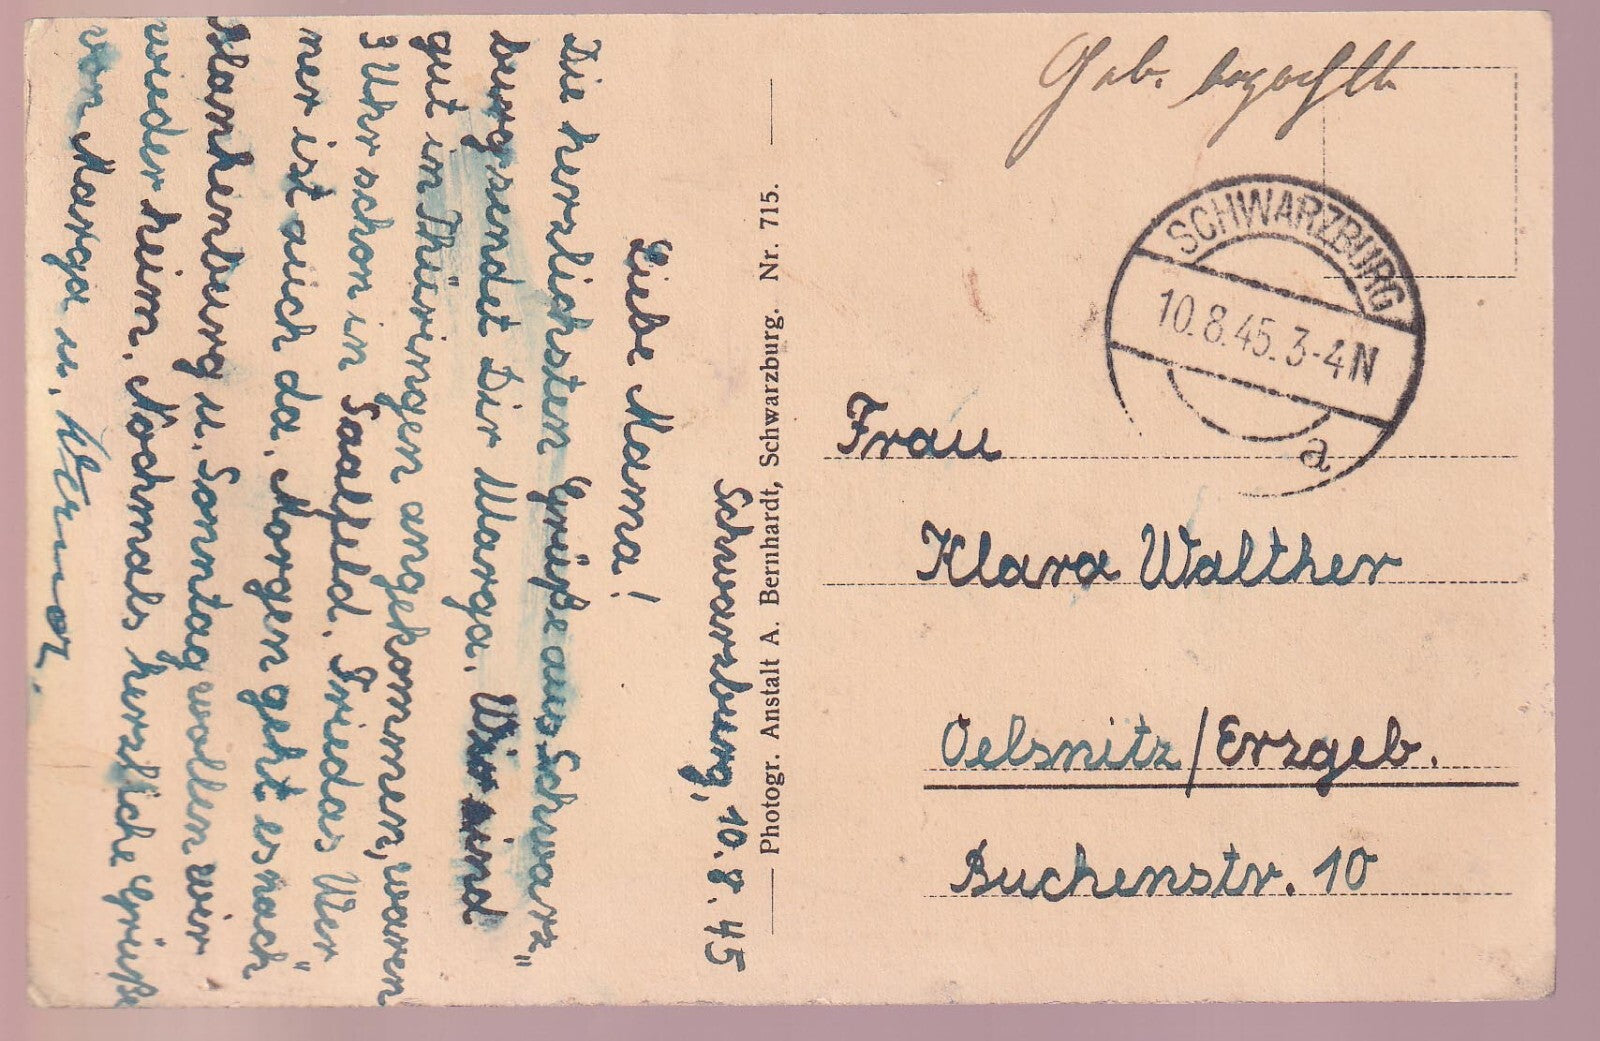 Schwarzburg, 10.8.45
Liebe Mama!
Die herzlichsten Grüße aus Schwarz„
burg sendet Dir Marga. Wir sind
gut in Thüringen angekommen, waren
3 Uhr schon in Saalfeld. Friedas Wer„
ner ist auch da. Morgen geht es nach
u. Sonntag wollen wir
wieder heim. Nochmals herzliche Grüße
von Marga u. Werner.
Photogr. Anstalt A. Bernhardt, Schwarzburg. Nr. 715.
Geb. bezahlt
SCHWARZBURG
10.8.45.3-4N
a
Frau
Klara Walther
Oelsnitz/Erzgeb.
Buchenstr. 10